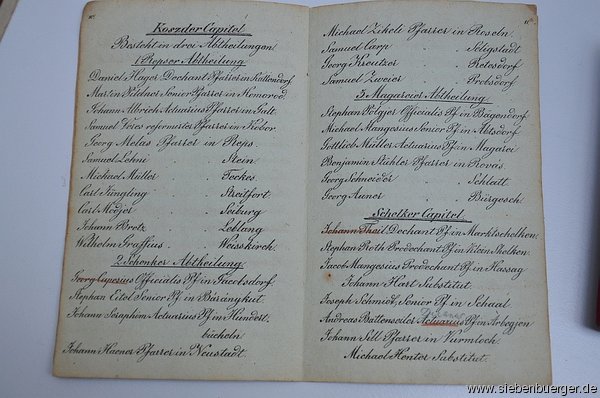 10.
Koszder Capitel
Besteht in drei Abtheilungen
1 Repser Abtheilung
Daniel Hager Dechant Pfarrer in Kattendorf
Martin Keldner Senior Pfarrer in Homorod.
Johann Albrich Actuarius Pfarrer in Galt.
Samuel Voies reformirter Pfarrer in Kobor
Georg Melas Pfarrer in Reps.
Samuel Lehni . Stein.
Michael Müller . Feckes.
Carl Jüngling . Streitfort.
Carl Modjer . Seiburg
Johann Brotz . Leblang
Wilhelm Graffius . Weisskirch.
2 Schenker Abtheilung
Georg Cuperus Officialis Pf in Jacobsdorf.
Stephan Eitel Senior Pf. in Bürangkut.
Johann Seraphim Actuarius Pf in Hundert-
bücheln.
Johann Haener Pfarrer in Neustadt.
11.
Michael Zikeli Pfarrer in Roseln.
Samuel Carp . Seligstadt
Georg Kreutzer . Retersdorf
Samuel Zweier . Probsdorf
3 Magareier Abtheilung
Stephan Folgjer Officialis Pf in Bagendorf
Michael Mangesius Senior Pf in Abtsdorf
Gottlieb Müller Actuarius Pf in Magarei
Benjamin Stühler Pfarrer in Rovas
Georg Schneider . Schlatt.
Georg Auner . Bürgesch.
Schelker Capitel
Johann Theil Dechant Pf in Marktschelken.
Stephan Roth Prodechant Pf in Klein Schelken.
Jacob Mangesius Prodechant Pf in Hassag
Johann Hart Substitut.
Joseph Schmidt Senior Pf in Schaal
Andreas Battenseiler Actuarius Pf in Arbegjen
Johann Sill Pfarrer in Wurmloch.
Michael Henter Substitut.
www.siebenbuerger.de